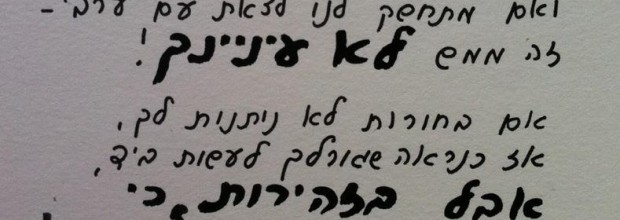 ואם מתחשק לנו לצאת עם ערבי -
זה ממש לא עיניינך!
אם בחורות לא ניתנות לך,
אז כנראה שגורלך לעשות ביד,
אבל בזהירות, כי